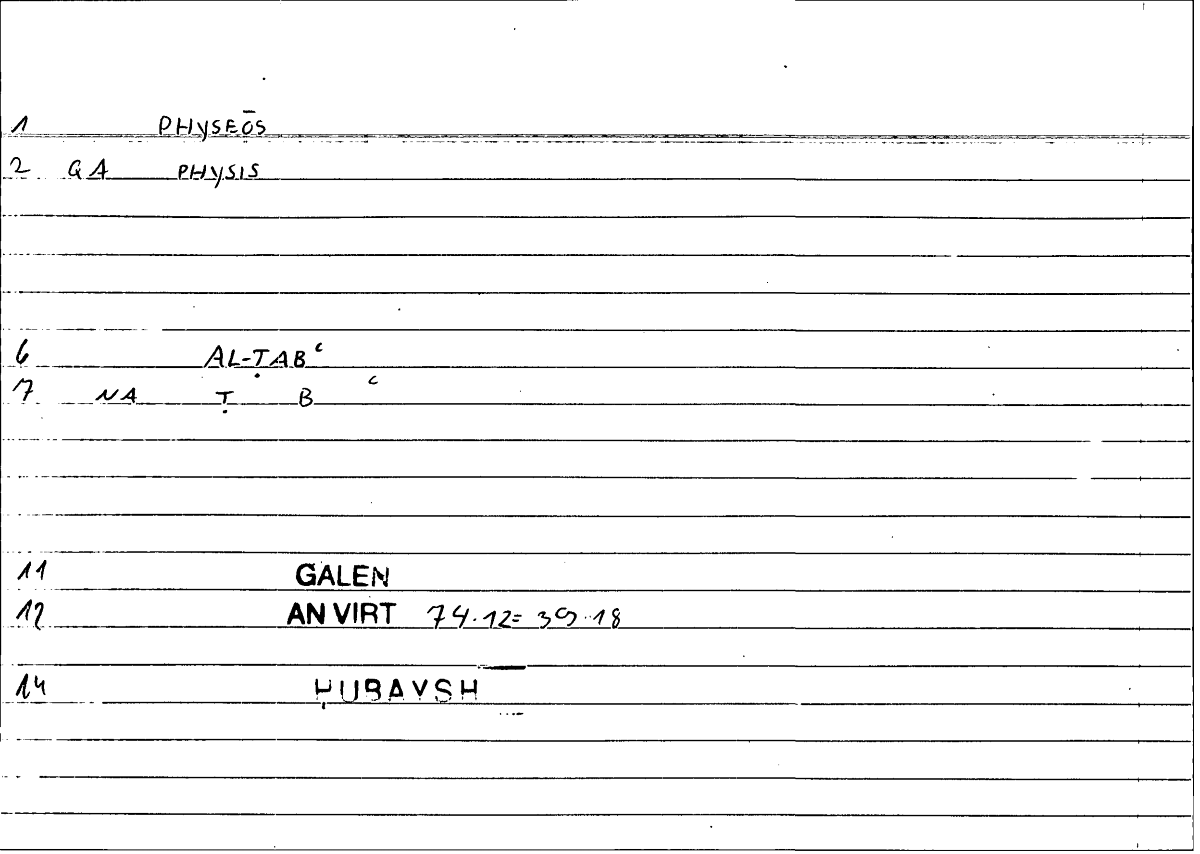 1 PHYSEŌS
2 GA PHYSIS
6 AL-ṬABʿ
7 NA Ṭ B ʿ
11 GALEN
12 AN VIRT 74.12= 39.18
14 ḤUBAYSH